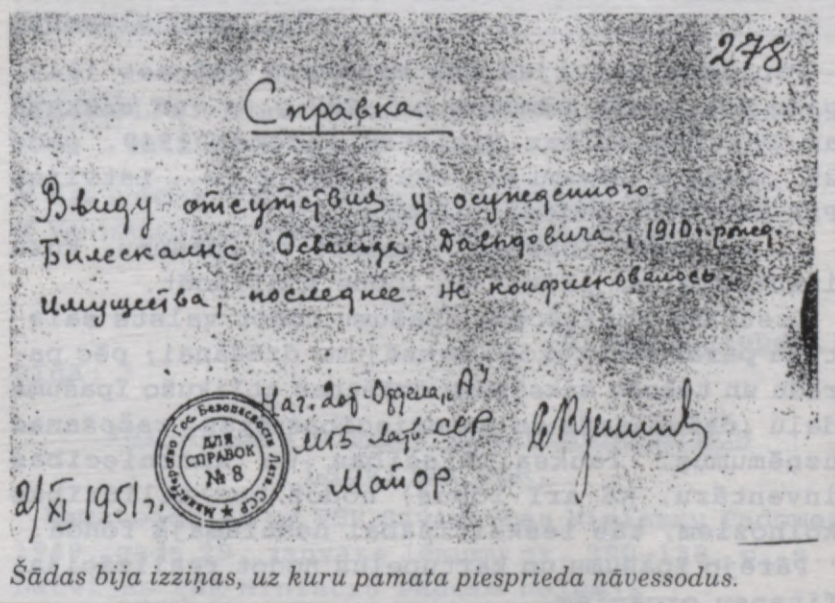 278
Справка
Ввиду отсутствия у осужденного
Билескалнс Освальда Давыдовича, 1910 г. рожд.
имущества, последнее не конфисковалось.
Нач. 2 отд. Отдела "А"
МГБ Латв. ССР
Майор
2/XI 1951 г.
Министерство Гос. Безопасности Латв. ССР
ДЛЯ
СПРАВОК
№ 8
Šādas bija izziņas, uz kuru pamata piesprieda nāvessodus.